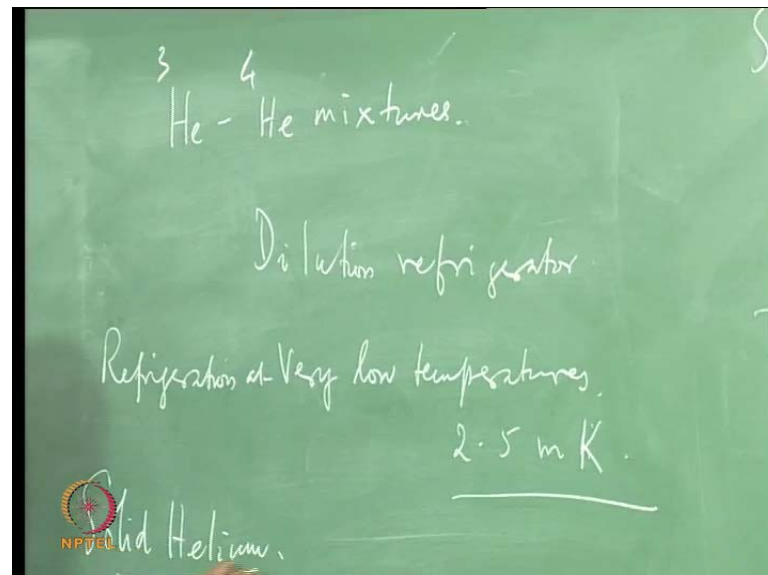 3 4
He - He mixtures.
Dilution refrigerator
Refrigeration at Very low temperatures.
2.5 mK.
Solid Helium.
NPTEL